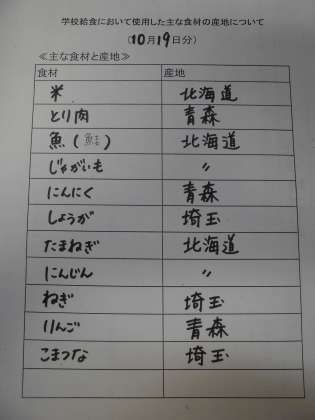 学校給食において使用した主な食材の産地について
(10月19日分)
≪主な食材と産地≫
食材 産地
米 北海道
とり肉 青森
魚(鮭) 北海道
じゃがいも 〃
にんにく 青森
しょうが 埼玉
たまねぎ 北海道
にんじん 〃
ねぎ 埼玉
りんご 青森
こまつな 埼玉